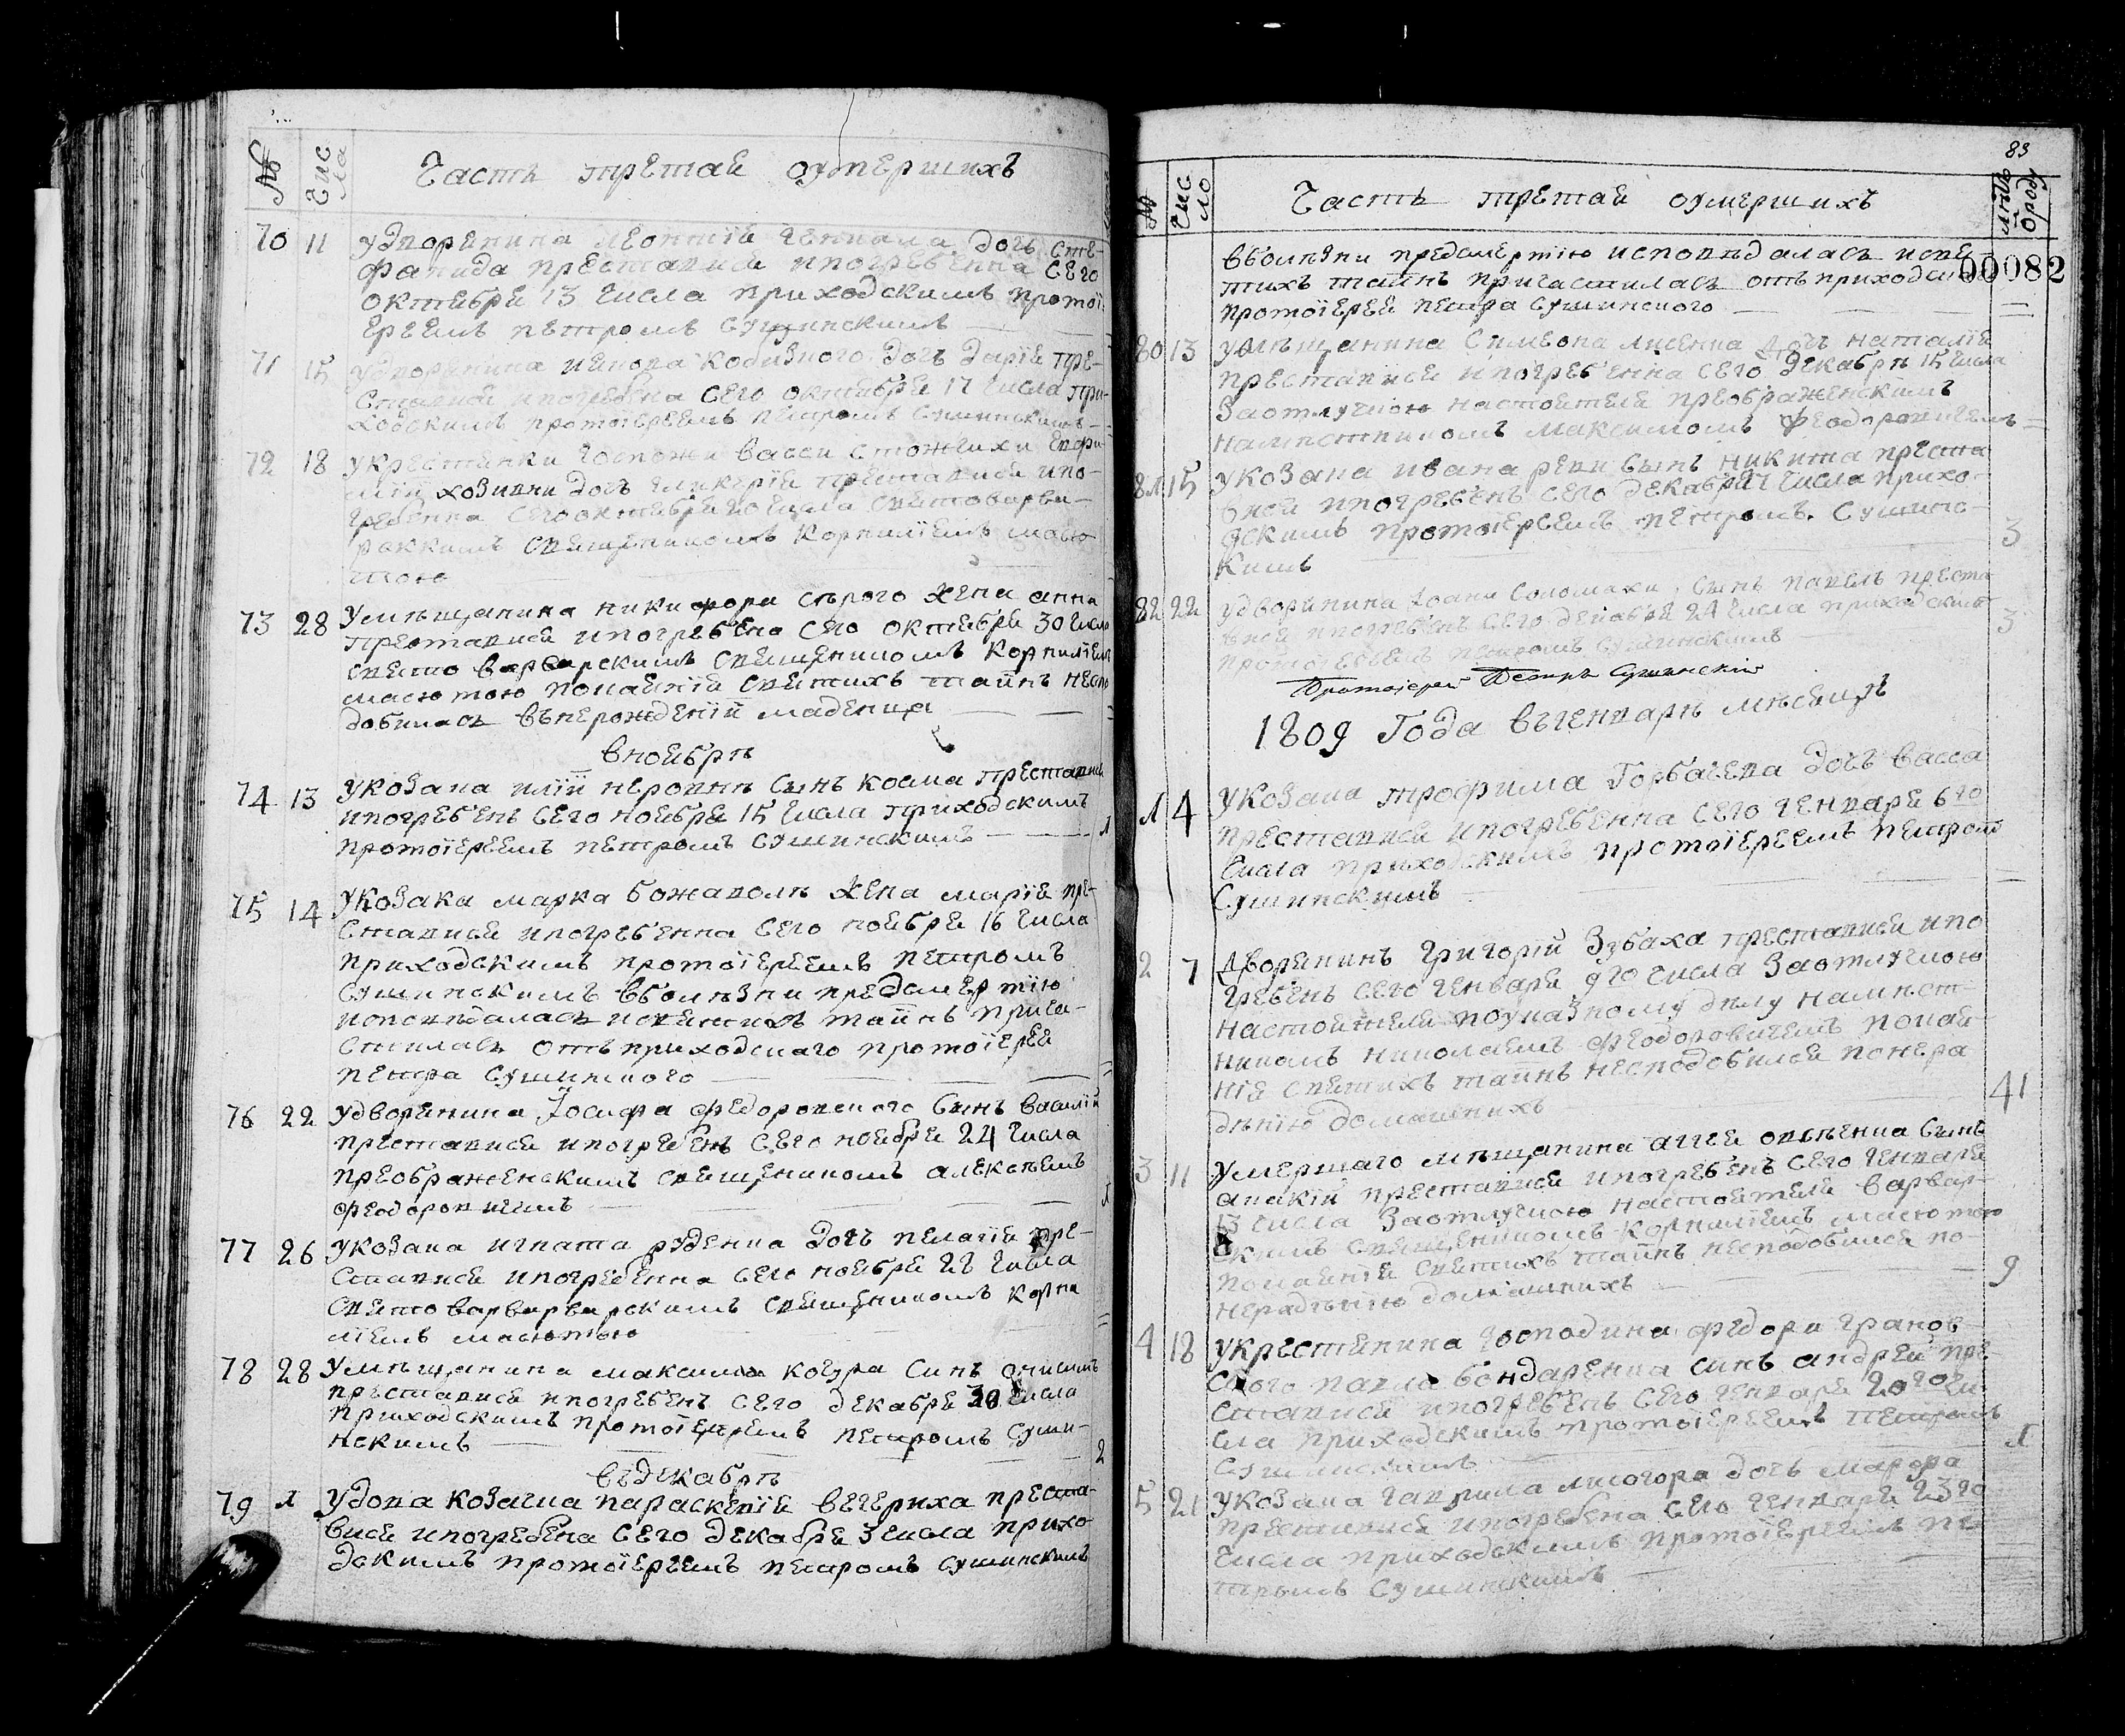 № Чис ла Часть третая оумершихъ
70 11 У дворянина Леонтія дочь Сте-
фанида преставися и погребенна сего
октября 13 числа приходскимъ протоі-
ереемъ Петромъ Сушинскимъ
71 15 У дворянина дочь Дарія пре-
ставися и погребена сего октября 17 числа при-
ходскимъ протоіереемъ Петромъ Сушинскимъ
72 18 У крестянки госпожи Вассы Стожихи
дочь Гликерія преставися и по-
гребенна сего октября 20 числа Святоварва-
рскимъ священникомъ Корниліемъ Масю-
тою
73 28 У мѣщанина Никифора Сѣрого жена Анна
преставися и погребена сего октября 30 числа
Свято Варварскимъ священникомъ Корниліемъ
Масютою покаянія святихъ таинъ неспо
добилась въ нерожденій маденца
в ноябрѣ
74 13 У козака Иліи сынъ Косма преставис
и погребенъ сего ноября 15 числа приходскимъ
протоіереемъ Петромъ Сушинскимъ 1
75 14 У козака Марка Божаволѣ жена Марія пре-
ставися и погребенна сего ноября 16 числа
приходскимъ протоіереемъ Петромъ
Сушинскимъ в болѣзни предсмертію
исповѣдалась и святихъ таинъ прича-
стилась отъ приходского протоіерея
Петра Сушинского
76 22 У дворянина Іосифа Федоровского сынъ Василій
преставися и погребенъ сего ноября 24 числа
Преображенскимъ священникомъ Алексѣемъ
Феодоровичемъ 1
77 26 У козака Игната Руденка дочь Пелагія пре-
ставися и погребенна сего ноября 28 числа
Свято Варварварскимъ священникомъ Корни
ліемъ Масютою
78 28 У мѣщанина Максима Кочура синъ Онисимъ
преставися и погребенъ сего декабря 30 числа
приходскимъ протоіереемъ Петромъ Суши-
нскимъ 2
въ декабрѣ
79 1 Удова козачка Параскевія Вечериха преста-
вися и погребена сего декабря 3 числа прихо
дскимъ протоіереемъ Петромъ Сушинскимъ
83
№ Чис ло Часть третая оумершихъ лѣто ѿ роду
в болѣзни предсмертію исповѣдалась и свя-
тихъ таинъ причастилась отъ приходского
00082
протоіерея Петра Сушинского
80 13 У мѣщанина Симеона Лисенка дочь Наталія
преставися и погребенна сего декабря 15 числа
за отлучкою настоятеля Преображенскимъ
намѣстникомъ Максимомъ Феодоровичемъ
81 15 У козака Ивана Репи сынъ Никита преста
вися и погребенъ сего декабря 17 числа прихо-
дскимъ протоіереемъ Петромъ Сушинс-
кимъ 3
82 22 У дворянина Іоана Соломахи сынъ Павелъ преста
вися и погребенъ сего декабря 24 числа приходскимъ
протоіереемъ Петромъ Сушинскимъ 3
Протоіерей Петръ Сушинскій
1809 Года въ генварѣ мѣсяцѣ
1 4 У козака Трофима Горбачева дочь Васса
преставися и погребенна сего генваря 6го
числа приходскимъ протоіереемъ Петромъ
Сушинскимъ
2 7 Дворянинъ Григорій Зубаха преставися и по
гребенъ сего генваря 9го числа за отлучкою
настоятеля по указному дѣлу намѣст-
никомъ Николаемъ Феодоровичемъ покая-
нія святихъ таинъ несподобился по нера
дѣнію домашнихъ 41
3 11 Умершаго мѣщанина Аггея Овсѣенка сынъ
преставися и погребенъ сего генваря
13 числа за отлучкою настоятеля Варвар-
скимъ священникомъ Корниліемъ Масютою
покаянія святихъ таинъ несподобился по-
нерадѣнію домашнихъ 9
4 18 У крестянина господина Федора Гранов-
ского Павла Бондаренка синъ Андрей пре-
ставися и погребенъ сего генваря 20го чи-
сла приходскимъ протоіереемъ Петромъ
Сушинскимъ 1
5 21 У козака Гаврила дочь Марфа
преставися и погребена сего генваря 23го
числа приходскимъ протоіереемъ Пе-
тромъ Сушинскимъ